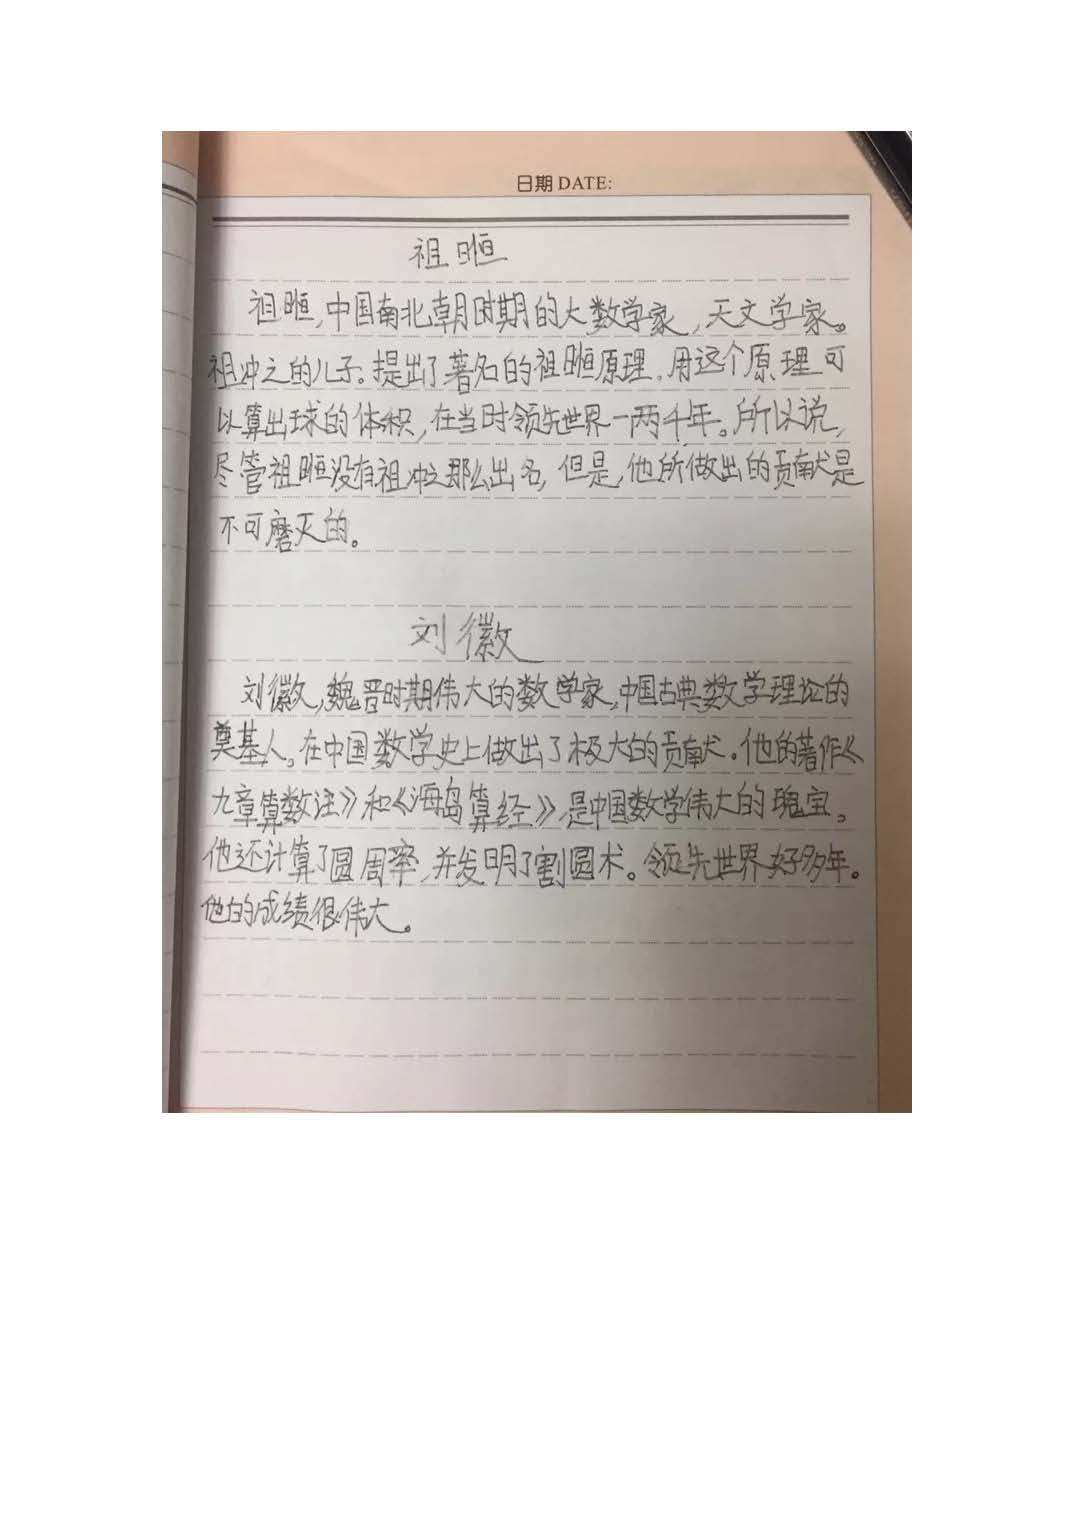 日期 DATE:
祖暅
祖暅,中国南北朝时期的大数学家,天文学家。
祖冲之的儿子。提出了著名的祖暅原理,用这个原理可
以算出球的体积,在当时领先世界一两千年。所以说,
尽管祖暅没有祖冲之那么出名,但是,他所做出的贡献是
不可磨灭的。
刘徽
刘徽,魏晋时期伟大的数学家,中国古典数学理论的
奠基人。在中国数学史上做出了极大的贡献。他的著作《
九章算数注》和《海岛算经》,是中国数学伟大的瑰宝。
他还计算了圆周率,并发明了割圆术。领先世界好多年。
他的成绩很伟大。